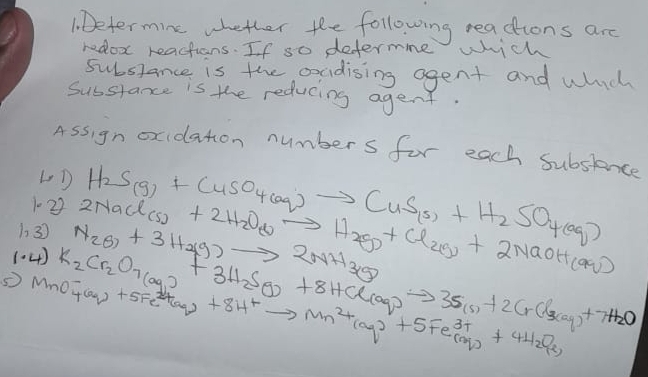 1. Determine whether the following reactions are
redox reactions. If so determine which
substance is the oxidising agent and which
substance is the reducing agent.
Assign oxidation numbers for each substance
1.1) H2S(g) + CuSO4(aq) → CuS(s) + H2SO4(aq)
1.2) 2NaCl(s) + 2H2O(l) → H2(g) + Cl2(g) + 2NaOH(aq)
1.3) N2(g) + 3H2(g) → 2NH3(g)
1.4) K2Cr2O7(aq) + 3H2S(g) + 8HCl(aq) → 3S(s) + 2CrCl3(aq) + 7H2O
5) MnO4-(aq) + 5Fe2+(aq) + 8H+ → Mn2+(aq) + 5Fe3+(aq) + 4H2O(l)